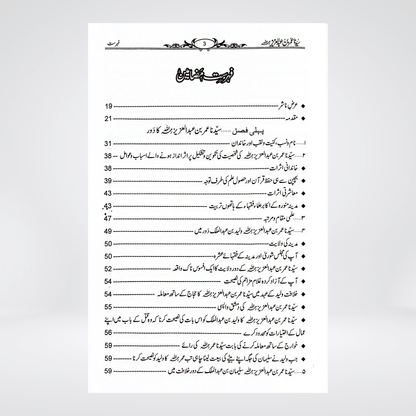 سیّدنا عمر بن عبدالعزیز رحمہ اللہ 3 فہرست
فہرست مضامین
◆ عرض ناشر 19
◆ مقدمہ 21
پہلی فصل — سیّدنا عمر بن عبدالعزیز رحمہ اللہ کا دَور
۱۔ نام ونسب، کنیت ولقب اور خاندان 31
۲۔ سیّدنا عمر بن عبدالعزیز رحمہ اللہ کی شخصیت کی تکوین وتشکیل پر اثر انداز ہونے والے اسباب وعوامل 38
◆ خاندانی اثرات 38
◆ بچپن سے ہی حفظ قرآن اور حصول علم کی طرف توجہ 39
◆ معاشرتی اثرات 43
◆ مدینہ منورہ کے اکابر علماء وفقہاء کے ہاتھوں تربیت 43
۳۔ علمی مقام ومرتبہ 47
۴۔ سیّدنا عمر بن عبدالعزیز رحمہ اللہ ولید بن عبدالملک کے دَور میں 49
◆ مدینہ کی ولایت 50
◆ آپ کی مجلس شوریٰ اور مدینہ کے فقہائے عشرہ 50
◆ سیّدنا عمر بن عبدالعزیز رحمہ اللہ کے دور ولایت کا ایک افسوس ناک واقعہ 52
◆ آپ کے آزاد کردہ غلام مزاحم کی نصیحت 54
◆ خلافت ولید کے عہد میں سیّدنا عمر بن عبدالعزیز رحمہ اللہ کا حجاج کے ساتھ معاملہ 54
◆ سیّدنا عمر بن عبدالعزیز رحمہ اللہ کی دمشق واپسی 55
◆ سیّدنا عمر بن عبدالعزیز رحمہ اللہ کا ولید بن عبدالملک کو اس بات کی نصیحت کرنا کہ وہ قتل کے باب میں اپنے
عمال کے اختیارات کو محدود کرے 56
◆ خوارج کے ساتھ معاملہ کرنے کی بابت سیّدنا عمر بن عبدالعزیز رحمہ اللہ کی رائے 59
◆ جب ولید نے سلیمان کی جگہ اپنے بیٹے کی بیعت لینا چاہی تب عمر رحمہ اللہ کا ولید کو نصیحت کرنا 59
۵۔ سیّدنا عمر بن عبدالعزیز رحمہ اللہ سلیمان بن عبدالملک کے دور خلافت میں 59